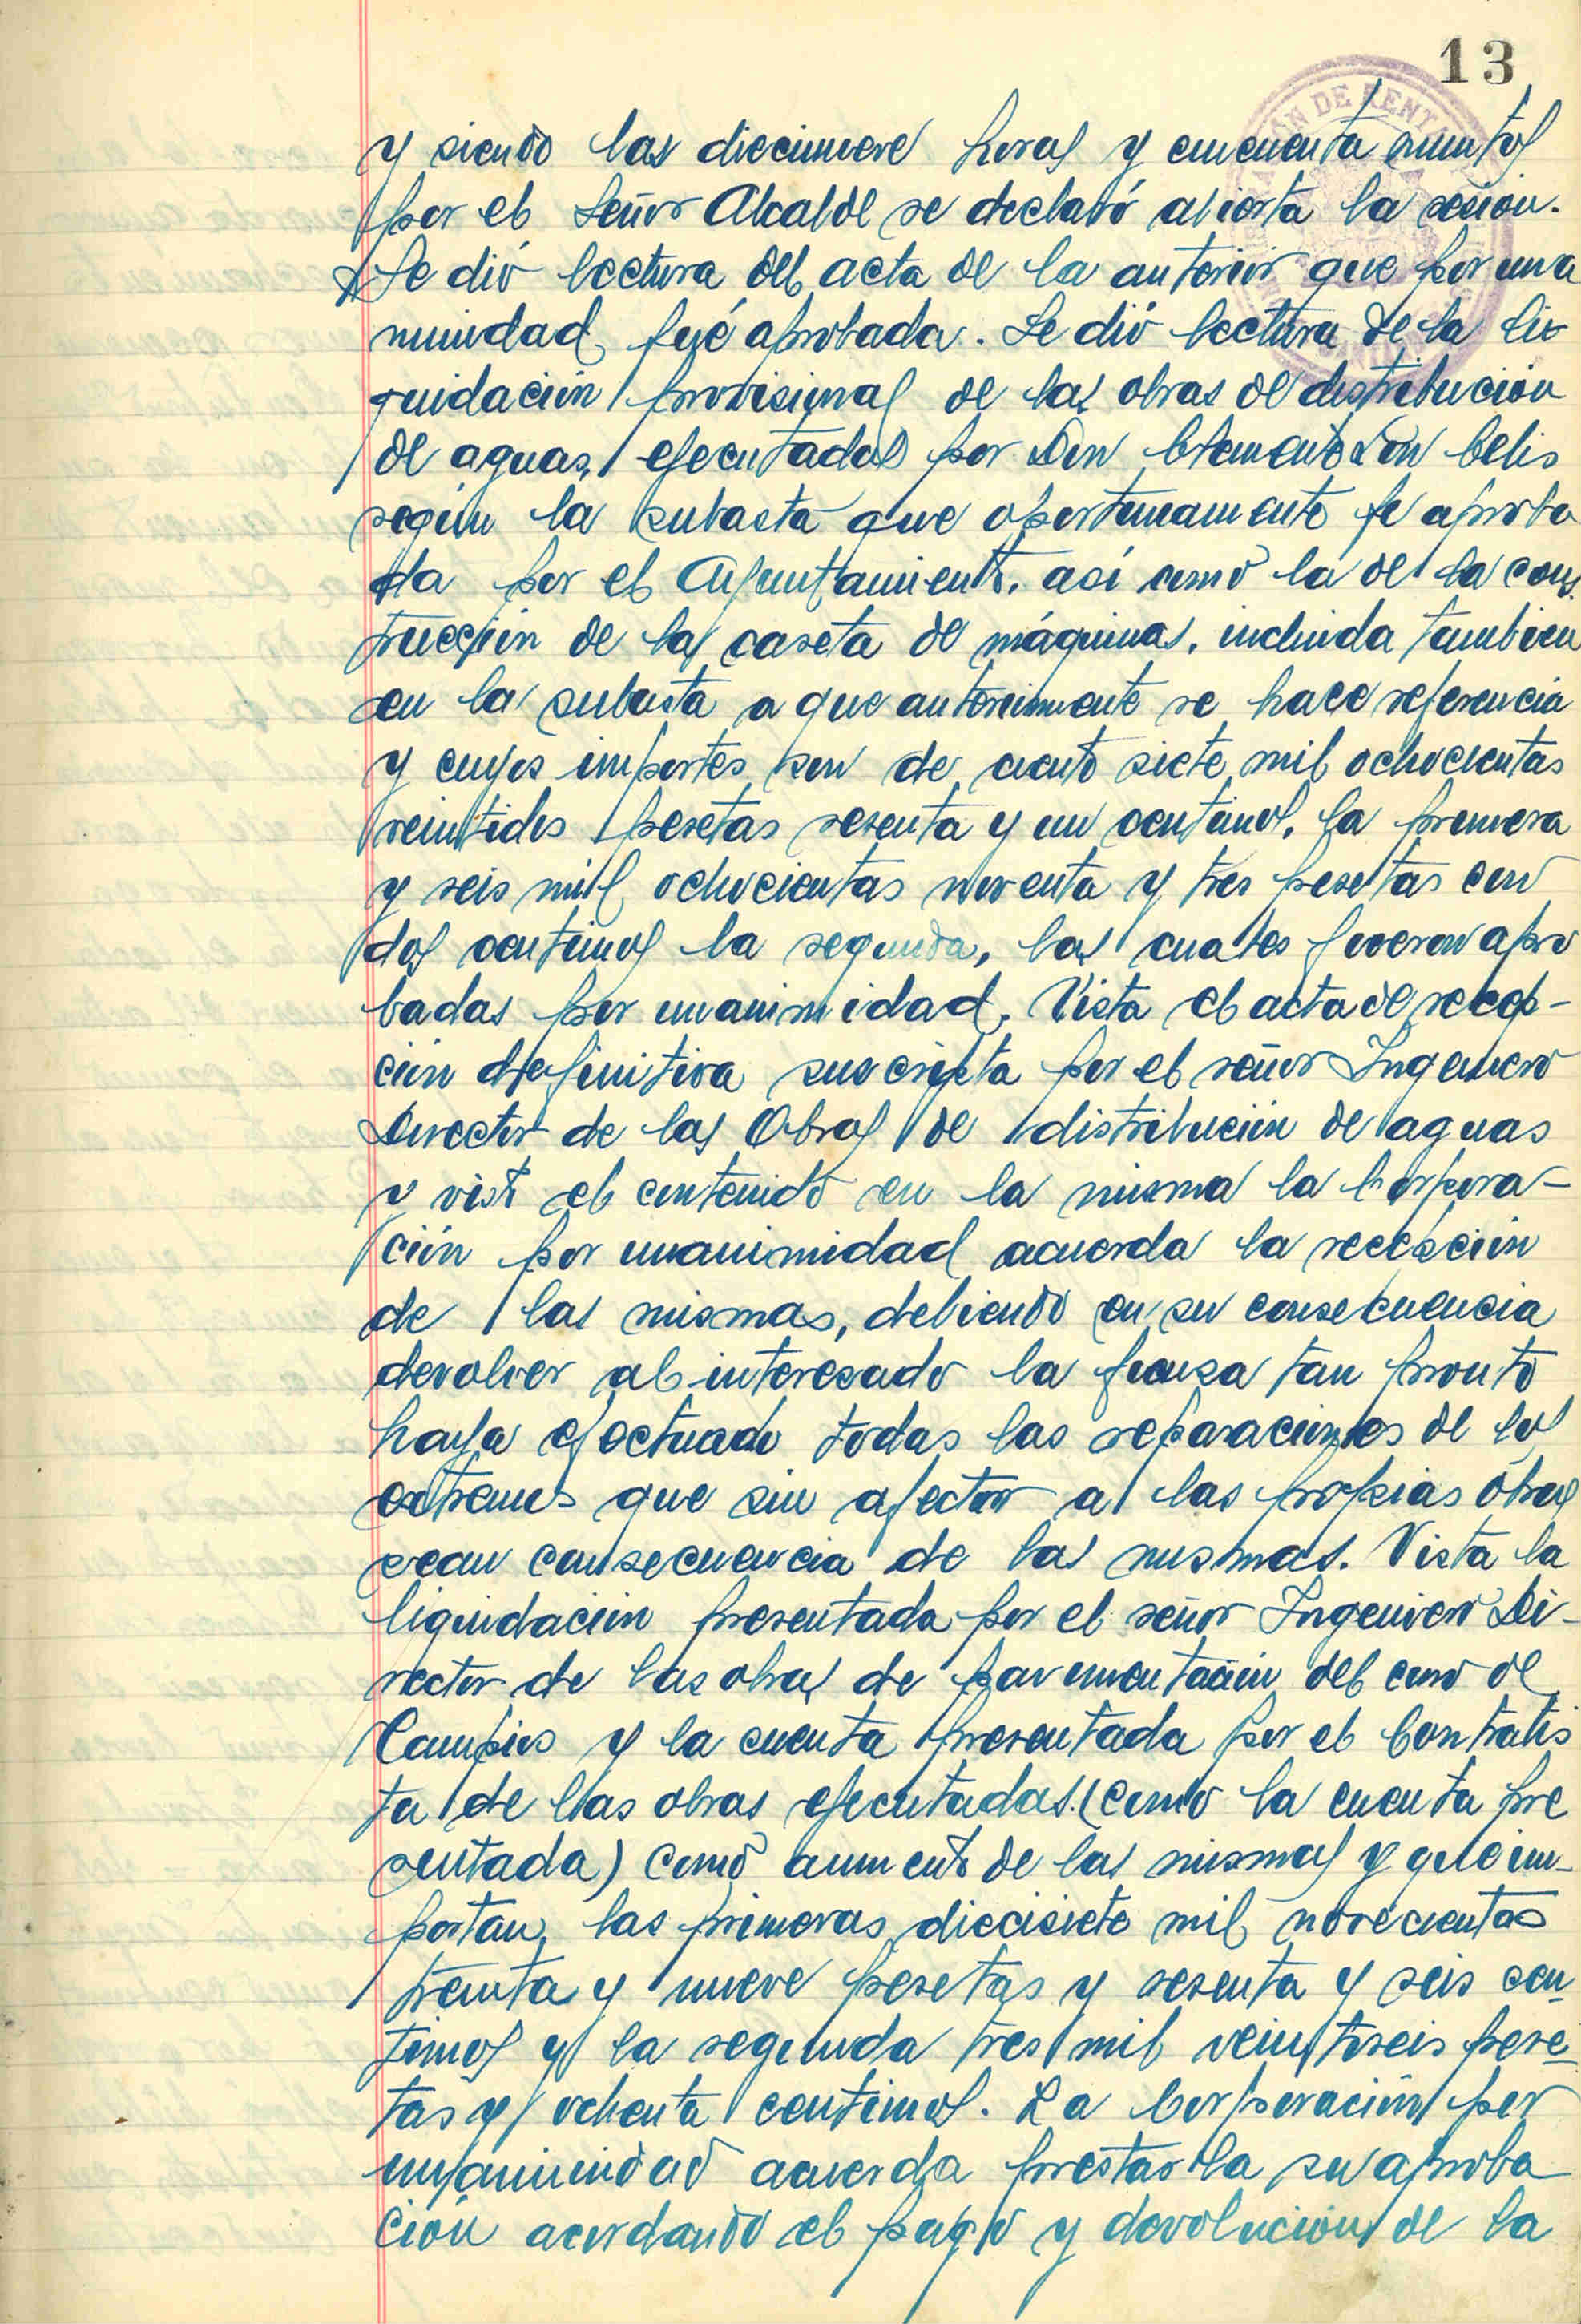 13
y siendo las diecinueve horas y cincuenta minutos
por el Señor Alcalde se declaró abierta la sesion.
Se dió lectura del acta de la anterior que por una
nimidad fué aprobada. Se dió lectura de la li
quidación provisional de las obras de distribución
de aguas, ejecutadas por Don Clemente Don Celis
según la subasta que oportunamente fe aproba
da por el Ayuntamiento, así como la de la cons
trucción de la caseta de máquinas, incluida tambien
en la subasta a que anteriormente se hace referencia
y cuyos importes son de ciento siete mil ochocientas
veintidos pesetas sesenta y un centimos, la primera
y seis mil ochocientas noventa y tres pesetas con
dos centimos la segunda, las cuales fueron apro
badas por unanimidad. Vista el acta de recep-
ción definitiva suscripta por el señor Ingeniero
Director de las Obras de distribución de aguas
y visto el contenido en la misma la Corpora-
ción por unanimidad acuerda la recepción
de las mismas, debiendo en su consecuencia
devolver al interesado la fianza tan pronto
haya efectuado todas las reparaciones de los
extremos que sin afectar a las propias obras
sean consecuencia de las mismas. Vista la
liquidación presentada por el señor Ingeniero Di-
rector de las obras de pavimentación del de
Campios y la cuenta presentada por el Contratis
ta de las obras ejecutadas (como la cuenta pre
sentada) como aumento de las mismas y que im-
portan, las primeras diecisiete mil novecientas
treinta y nueve pesetas y sesenta y seis cen-
timos y la segunda tres mil veintiseis pese-
tas y ochenta centimos. La Corporación por
unanimidad acuerda prestarla su aproba
ción acordando el pago y devolución de la